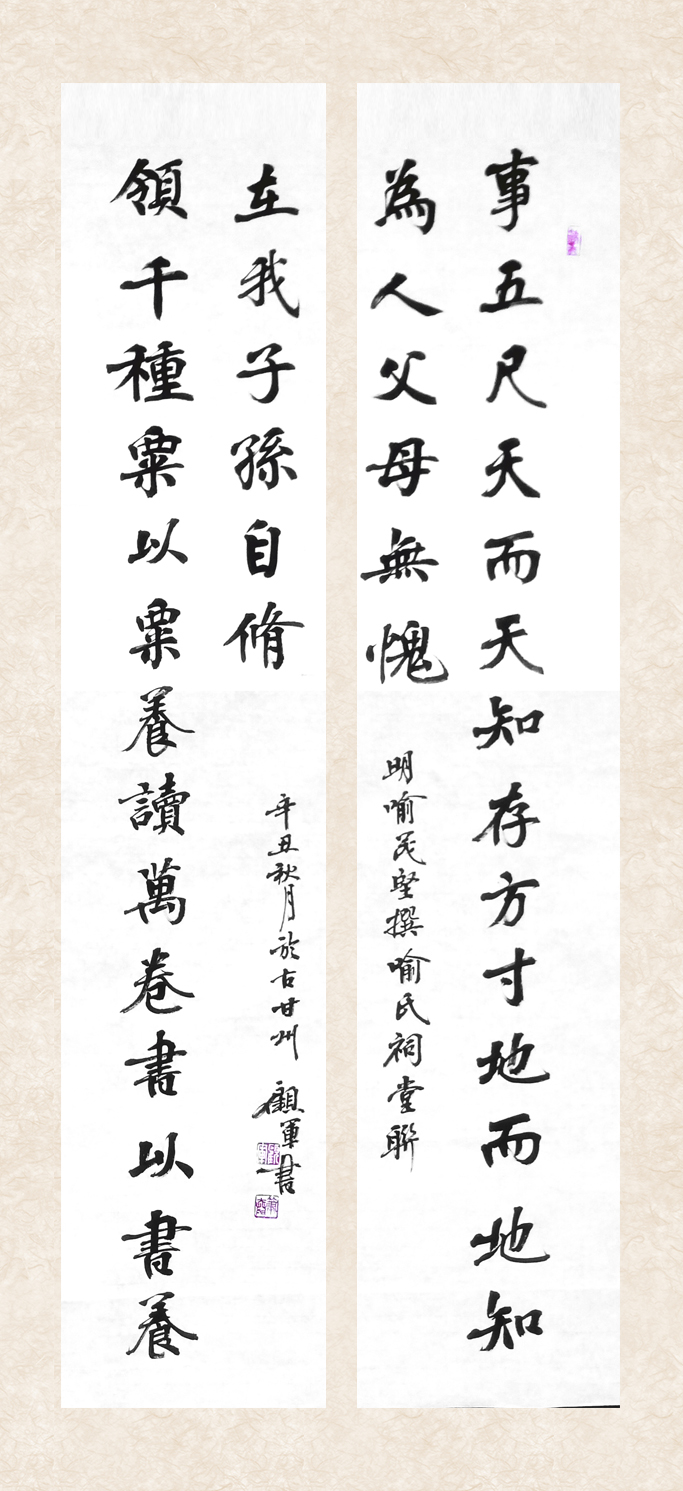 事五尺天而天知存方寸地而地知
為人父母無愧
明喻茂堅撰喻氏祠堂聯
領千種粟以粟養讀萬卷書以書養
在我子孫自脩
辛丑秋月於古甘州 顧軍書